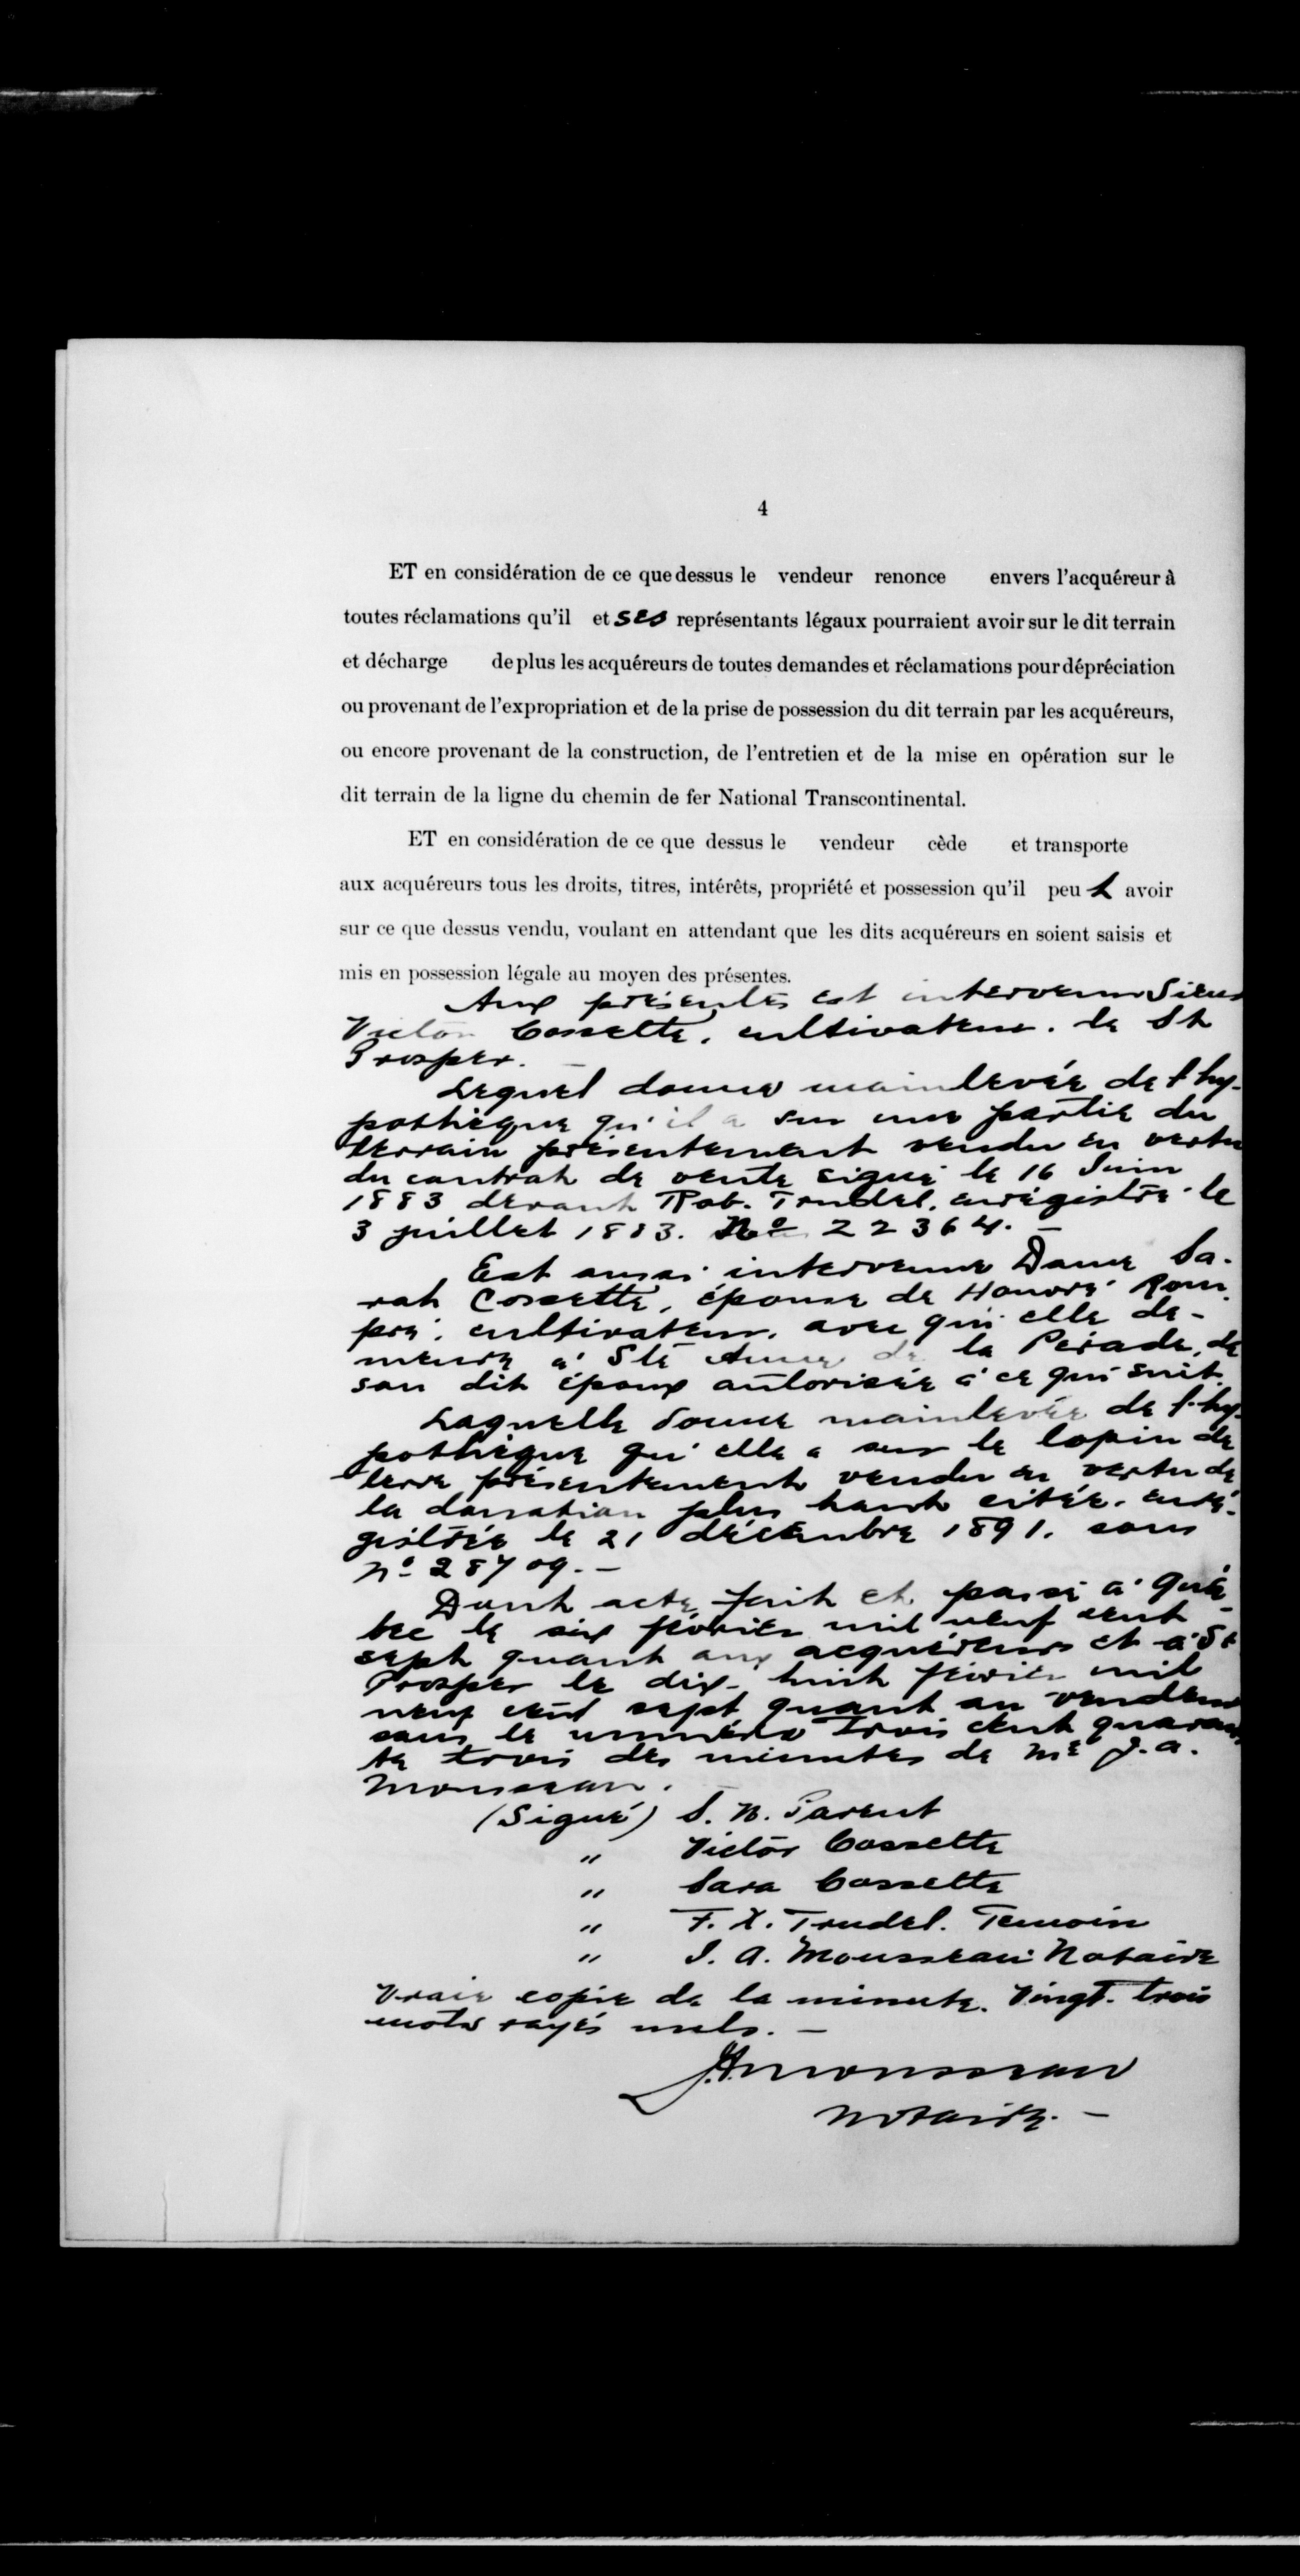 4
ET en considération de ce que dessus le vendeur renonce envers l'acquéreur à
toutes réclamations qu'il et ses représentants légaux pourraient avoir sur le dit terrain
et décharge de plus les acquéreurs de toutes demandes et réclamations pour dépréciation
ou provenant de l'expropriation et de la prise de possession du dit terrain par les acquéreurs,
ou encore provenant de la construction, de l'entretien et de la mise en opération sur le
dit terrain de la ligne du chemin de fer National Transcontinental.
ET en considération de ce que dessus le vendeur cède et transporte
aux acquéreurs tous les droits, titres, intérêts, propriété et possession qu'il peut avoir
sur ce que dessus vendu, voulant en attendant que les dits acquéreurs en soient saisis et
mis en possession légale au moyen des présentes.
Aux présentes est intervenu Sieur
Victor Cossette, cultivateur. de St
Prosper. —
Lequel donne mainlevée de l'hy-
pothèque qu'il a sur une partie du
terrain présentement vendu en vertu
du contrat de vente signé le 16 Juin
1883 devant Rob. Trudel, enrégistré le
3 juillet 1883. No 22364. —
Est aussi intervenue Dame Sa-
rah Cossette, épouse de Honoré Rom
pré, cultivateur, avec qui elle de-
meure à Ste Anne de la Pérade, de
son dit époux autorisée à ce qui suit.
Laquelle donne mainlevée de l'hy-
pothèque qu'elle a sur le lopin de
terre présentement vendu en vertu de
la donation plus haut citée, enré-
gistrée le 21 décembre 1891. sous
No 28709. —
Dont acte fait et passé à Qué-
bec le six février mil neuf cent
sept quant aux acquéreurs et à St
Prosper le dix-huit février mil
neuf cent sept quant au vendeur
sous le numéro trois cent quaran
te trois des minutes de Me J. A.
Mousseau.
(Signé) S. N. Parent
" Victor Cossette
" Sara Cossette
" F. X. Trudel. Temoin
" J. A. Mousseau Notaire
Vraie copie de la minute. Vingt-trois
mots rayés nuls. —
J.A. Mousseau
Notaire. —